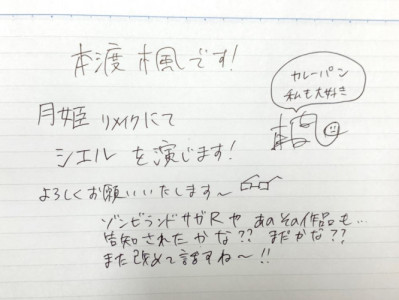 本渡楓です!
カレーパン
私も大好き
月姫 リメイクにて
シエル を演じます!
よろしくお願いいたします～
ゾンビランドサガR や あの その作品も…
告知されたかな?? まだかな??
また改めて話すね～!!